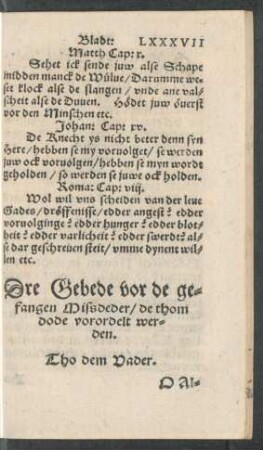 Bladt: LXXXVII
Matth Cap: x.
Sehet ick sende juw alse Schape
midden manck de Wülue/ Darumme we-
set klock alse de slangen / vnde ane val-
scheit alse de Duuen. Hödet juw öuerst
vor den Minschen etc.
Johan: Cap: xv.
De Knecht ys nicht beter denn syn
Here/ hebben se my voruolget/ se werden
juw ock voruolgen/ hebben se myn wordt
geholden / so werden se juwe ock holden.
Roma: Cap: viij.
Wol wil vns scheiden van der leue
Gades/ dröffenisse/ edder angest? edder
voruolginge? edder hunger? edder blot-
heit? edder varlicheit? edder swerdt? al-
se dar geschreuen steit/ vmme dynent wil-
len etc.
Dre Gebede vor de ge-
fangen Missdeder/ de thom
dode vorordelt wer-
den.
Tho dem Vader.
O Al-